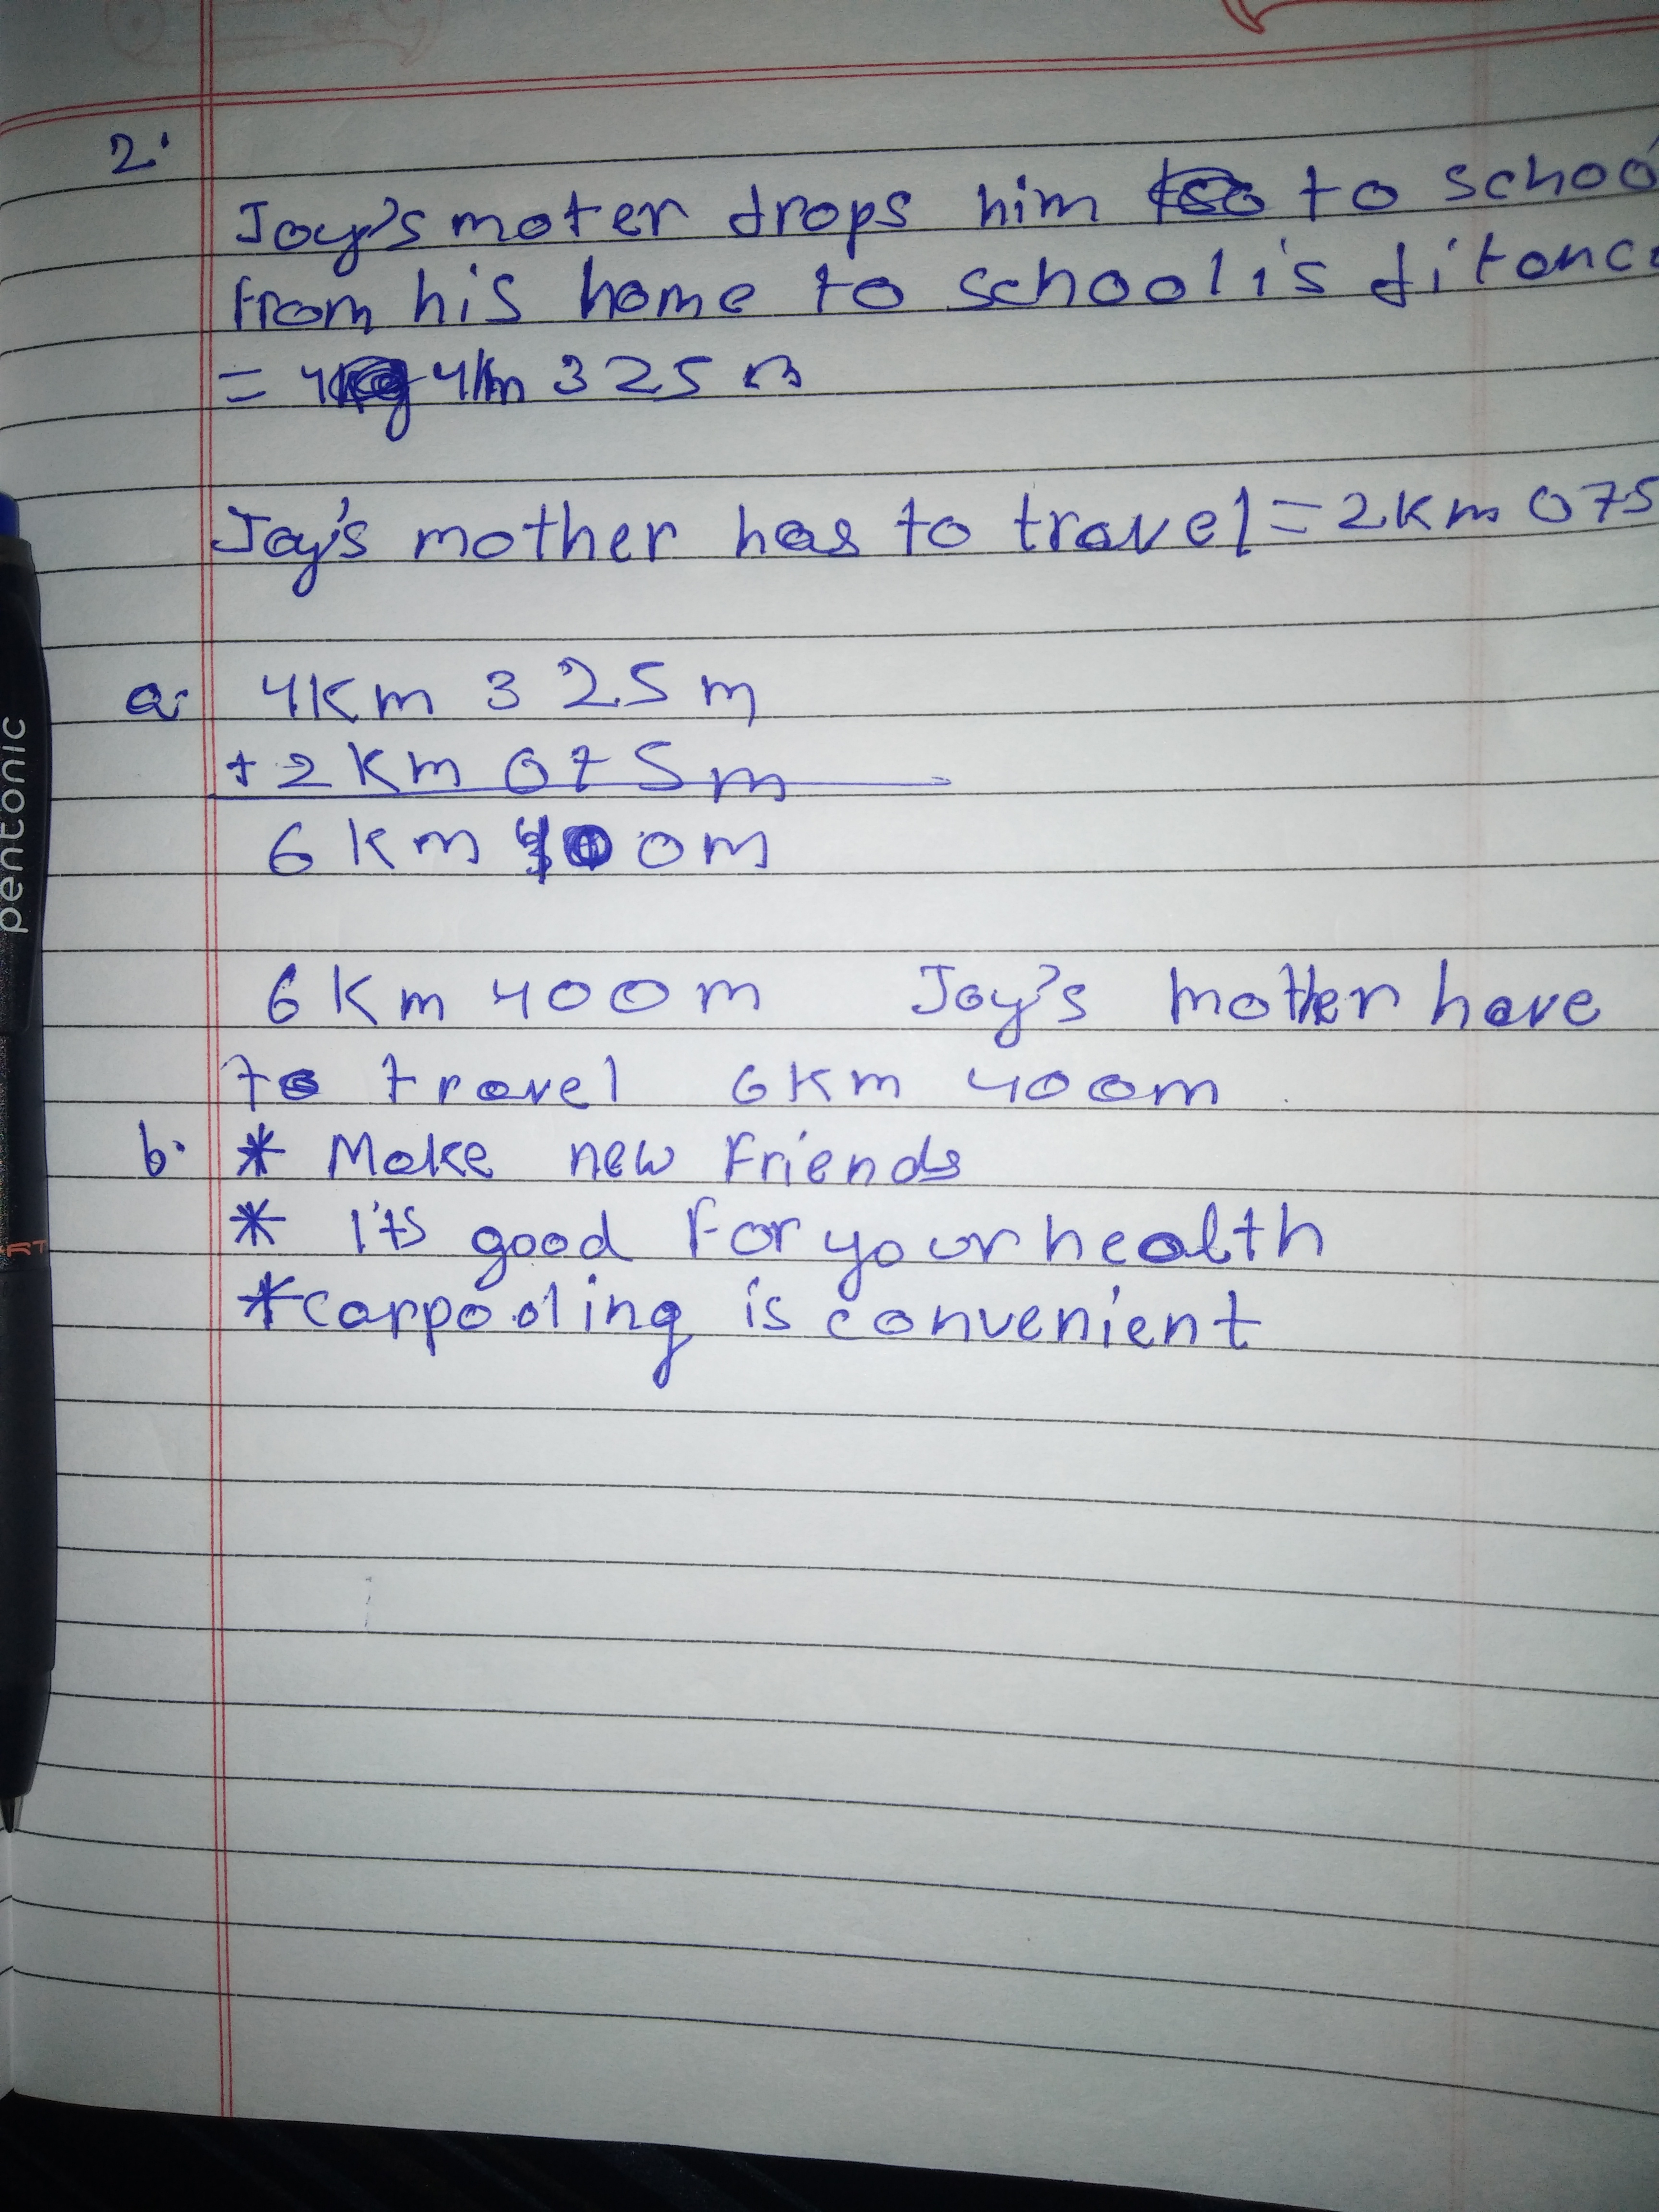 2.
Joy's moter drops him to schoo
from his home to school is ditance
= 4km 325 m
Joy's mother has to travel = 2km 075
a. 4km 325m
+ 2km 075m
6 km 400m
6 km 400m Joy's mother have
to travel 6km 400m
b. * Make new Friends
* It's good For your health
* carpooling is convenient
pentonic